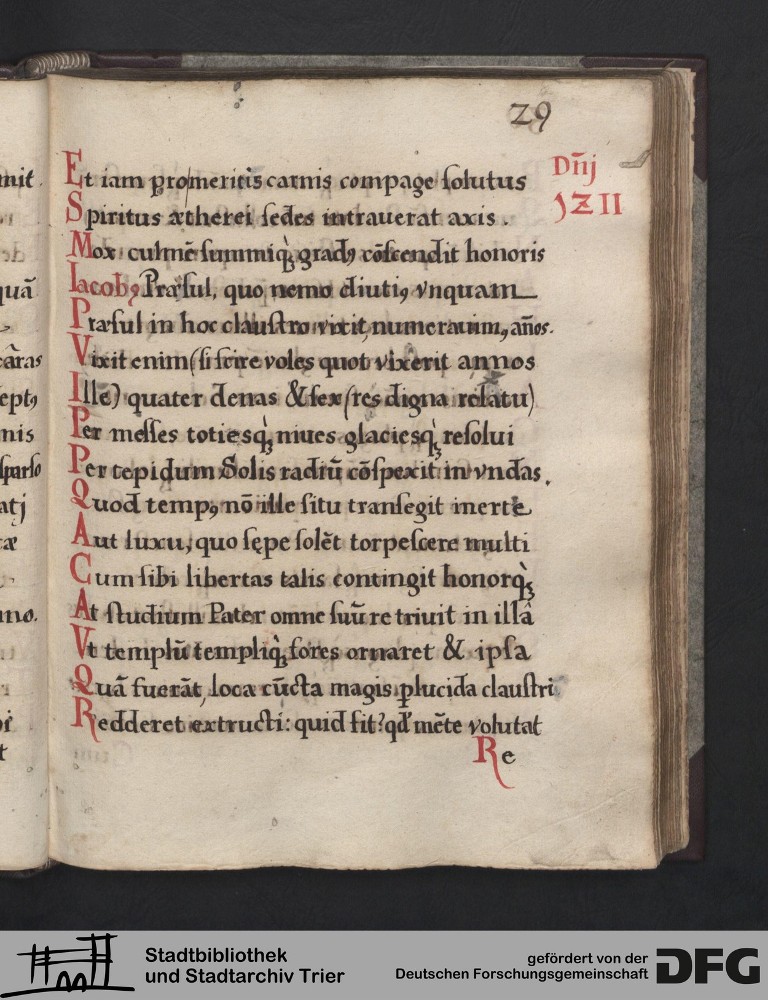 29
Dñij
1211
Et iam promeritis carnis compage solutus
Spiritus ætherei sedes intrauerat axis.
Mox culmē summiq̀ȝ gradꝰ cōscendit honoris
Iacobꝰ Præsul, quo nemo diutiꝰ vnquam
Præsul in hoc claustro vixit, numerauitꝙ, años.
Vixit enim (si scire voles quot vixerit annos
Ille) quater denas & sex (res digna relatu)
Per messes totiesq̀ȝ niues glaciesq̀ȝ resolui
Per tepidum Solis radiū cōspexit in vndas.
Quod tempꝰ nō ille situ transegit inerte
Aut luxu, quo sępe solēt torpescere multi
Cum sibi libertas talis contingit honorq̀ȝ
At studium Pater omne suū retriuit in illā
Vt templū templiq̀ȝ fores ornaret & ipsa
Quā fuerāt, loca cūcta magis ꝑlucida claustri
Redderet extructi: quid sit? qđ mēte volutat
Re
mit.
quā
cāras
eptꝰ
nis
sparso
atj
tæ
mno.
Stadtbibliothek
und Stadtarchiv Trier
gefördert von der
Deutschen Forschungsgemeinschaft
DFG